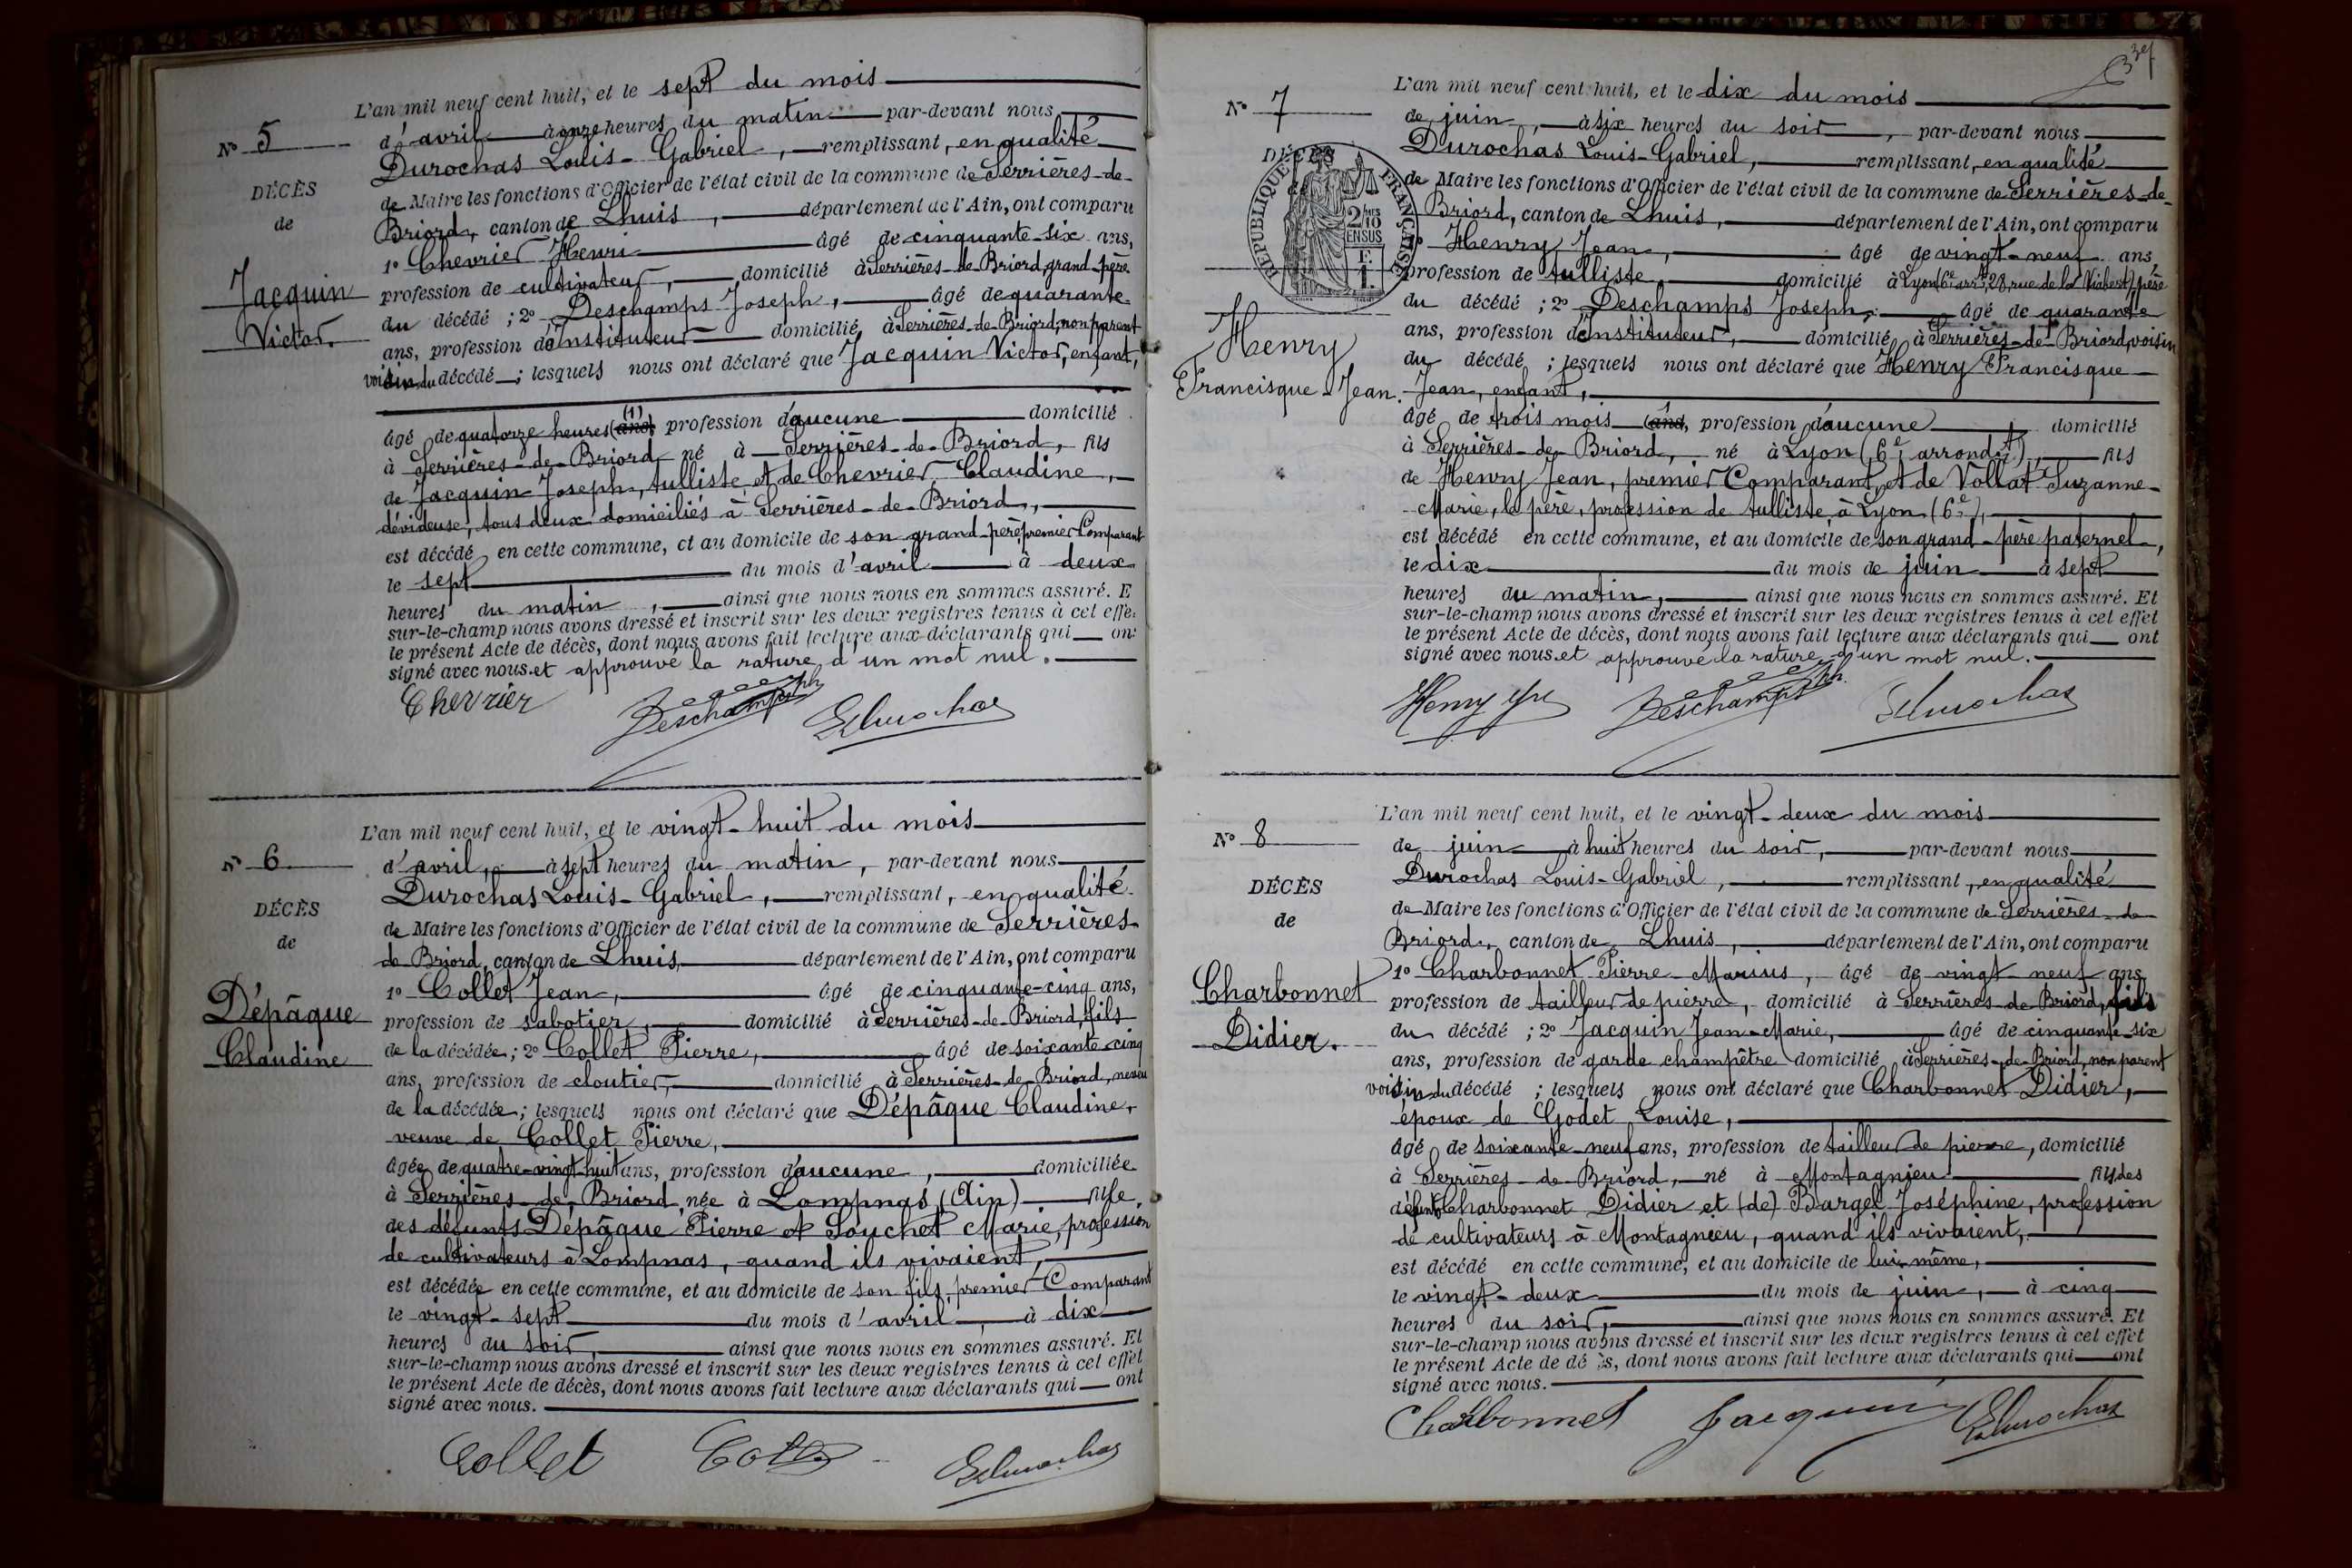 L'an mil neuf cent huit, et le sept du mois
N° 5
d'avril à onze heures du matin par-devant nous
Durochas Louis-Gabriel, remplissant, en qualité
DÉCÈS
de Maire les fonctions d'Officier de l'état civil de la commune de Serrières-de-
de
Briord, canton de Lhuis, département de l'Ain, ont comparu
1° Chevrier Henri âgé de cinquante-six ans,
Jacquin
profession de cultivateur, domicilié à Serrières-de-Briord, grand-père
Victor.
du décédé ; 2° Deschamps Joseph, âgé de quarante
ans, profession d'instituteur domicilié à Serrières-de-Briord, non parent
voisin du décédé ; lesquels nous ont déclaré que Jacquin Victor, enfant,
âgé de quatorze heures (1) (ans), profession d'aucune domicilié
à Serrières-de-Briord né à Serrières-de-Briord, fils
de Jacquin Joseph, tulliste et de Chevrier Claudine,
dévideuse, tous deux domiciliés à Serrières-de-Briord,
est décédé en cette commune, et au domicile de son grand-père, premier Comparant
le sept du mois d'avril à deux
heures du matin, ainsi que nous nous en sommes assuré. E
sur-le-champ nous avons dressé et inscrit sur les deux registres tenus à cet effe
le présent Acte de décès, dont nous avons fait lecture aux déclarants qui ont
signé avec nous et approuvé la rature d'un mot nul.
Chevrier Deschamps Jph Durochas
L'an mil neuf cent huit, et le vingt-huit du mois
N° 6
d'avril, à sept heures du matin, par-devant nous
Durochas Louis-Gabriel, remplissant, en qualité
DÉCÈS
de Maire les fonctions d'Officier de l'état civil de la commune de Serrières-
de
de Briord, canton de Lhuis, département de l'Ain, ont comparu
1° Collet Jean, âgé de cinquante-cinq ans,
Dépâque
profession de sabotier, domicilié à Serrières-de-Briord, fils
Claudine
de la décédée ; 2° Collet Pierre, âgé de soixante-cinq
ans, profession de cloutier, domicilié à Serrières-de-Briord, neveu
de la décédée ; lesquels nous ont déclaré que Dépâque Claudine,
veuve de Collet Pierre,
âgée de quatre-vingt-huit ans, profession d'aucune, domiciliée
à Serrières-de-Briord, née à Lompnas (Ain) fille
des défunts Dépâque Pierre et Souchet Marie, profession
de cultivateurs à Lompnas, quand ils vivaient,
est décédée en cette commune, et au domicile de son fils, premier Comparant
le vingt-sept du mois d'avril, à dix
heures du soir, ainsi que nous nous en sommes assuré. Et
sur-le-champ nous avons dressé et inscrit sur les deux registres tenus à cet effet
le présent Acte de décès, dont nous avons fait lecture aux déclarants qui ont
signé avec nous.
Collet Durochas
L'an mil neuf cent huit, et le dix du mois
N° 7
de juin, à six heures du soir, par-devant nous
DÉCÈS
Durochas Louis-Gabriel, remplissant, en qualité
de
de Maire les fonctions d'Officier de l'état civil de la commune de Serrières-de-
RÉPUBLIQUE FRANÇAISE
2/10 EN SUS
Briord, canton de Lhuis, département de l'Ain, ont comparu
1° Henry Jean, âgé de vingt-neuf ans,
profession de tulliste domicilié à Lyon (6e arrt, 28, rue de la Viabert) père
du décédé ; 2° Deschamps Joseph, âgé de quarante
Henry
ans, profession d'instituteur, domicilié à Serrières-de-Briord, voisin
du décédé ; lesquels nous ont déclaré que Henry Francisque
Francisque-Jean.
Jean, enfant,
âgé de trois mois (ans), profession d'aucune domicilié
à Serrières-de-Briord, né à Lyon (6e arrondt), fils
de Henry Jean, premier Comparant, et de Vollat Suzanne-
Marie, le père, profession de tulliste, à Lyon (6e),
est décédé en cette commune, et au domicile de son grand-père paternel,
le dix du mois de juin à sept
heures du matin, ainsi que nous nous en sommes assuré. Et
sur-le-champ nous avons dressé et inscrit sur les deux registres tenus à cet effet
le présent Acte de décès, dont nous avons fait lecture aux déclarants qui ont
signé avec nous et approuvé la rature d'un mot nul.
Henry Deschamps Jph. Durochas
L'an mil neuf cent huit, et le vingt-deux du mois
N° 8
de juin à huit heures du soir, par-devant nous
DÉCÈS
Durochas Louis-Gabriel, remplissant, en qualité
de
de Maire les fonctions d'Officier de l'état civil de la commune de Serrières-de
Briord, canton de Lhuis, département de l'Ain, ont comparu
Charbonnet
1° Charbonnet Pierre-Marius, âgé de vingt-neuf ans
profession de tailleur de pierre, domicilié à Serrières-de-Briord, fils
Didier.
du décédé ; 2° Jacquin Jean-Marie, âgé de cinquante-six
ans, profession de garde champêtre domicilié à Serrières-de-Briord, non parent
voisin du décédé ; lesquels nous ont déclaré que Charbonnet Didier,
époux de Godet Louise,
âgé de soixante-neuf ans, profession de tailleur de pierre, domicilié
à Serrières-de-Briord, né à Montagnieu fils des
défunts Charbonnet Didier et (de) Bargel Joséphine, profession
de cultivateurs à Montagnieu, quand ils vivaient,
est décédé en cette commune, et au domicile de lui-même,
le vingt-deux du mois de juin, à cinq
heures du soir, ainsi que nous nous en sommes assuré. Et
sur-le-champ nous avons dressé et inscrit sur les deux registres tenus à cet effet
le présent Acte de dé ès, dont nous avons fait lecture aux déclarants qui ont
signé avec nous.
Charbonnet Jacquin Durochas